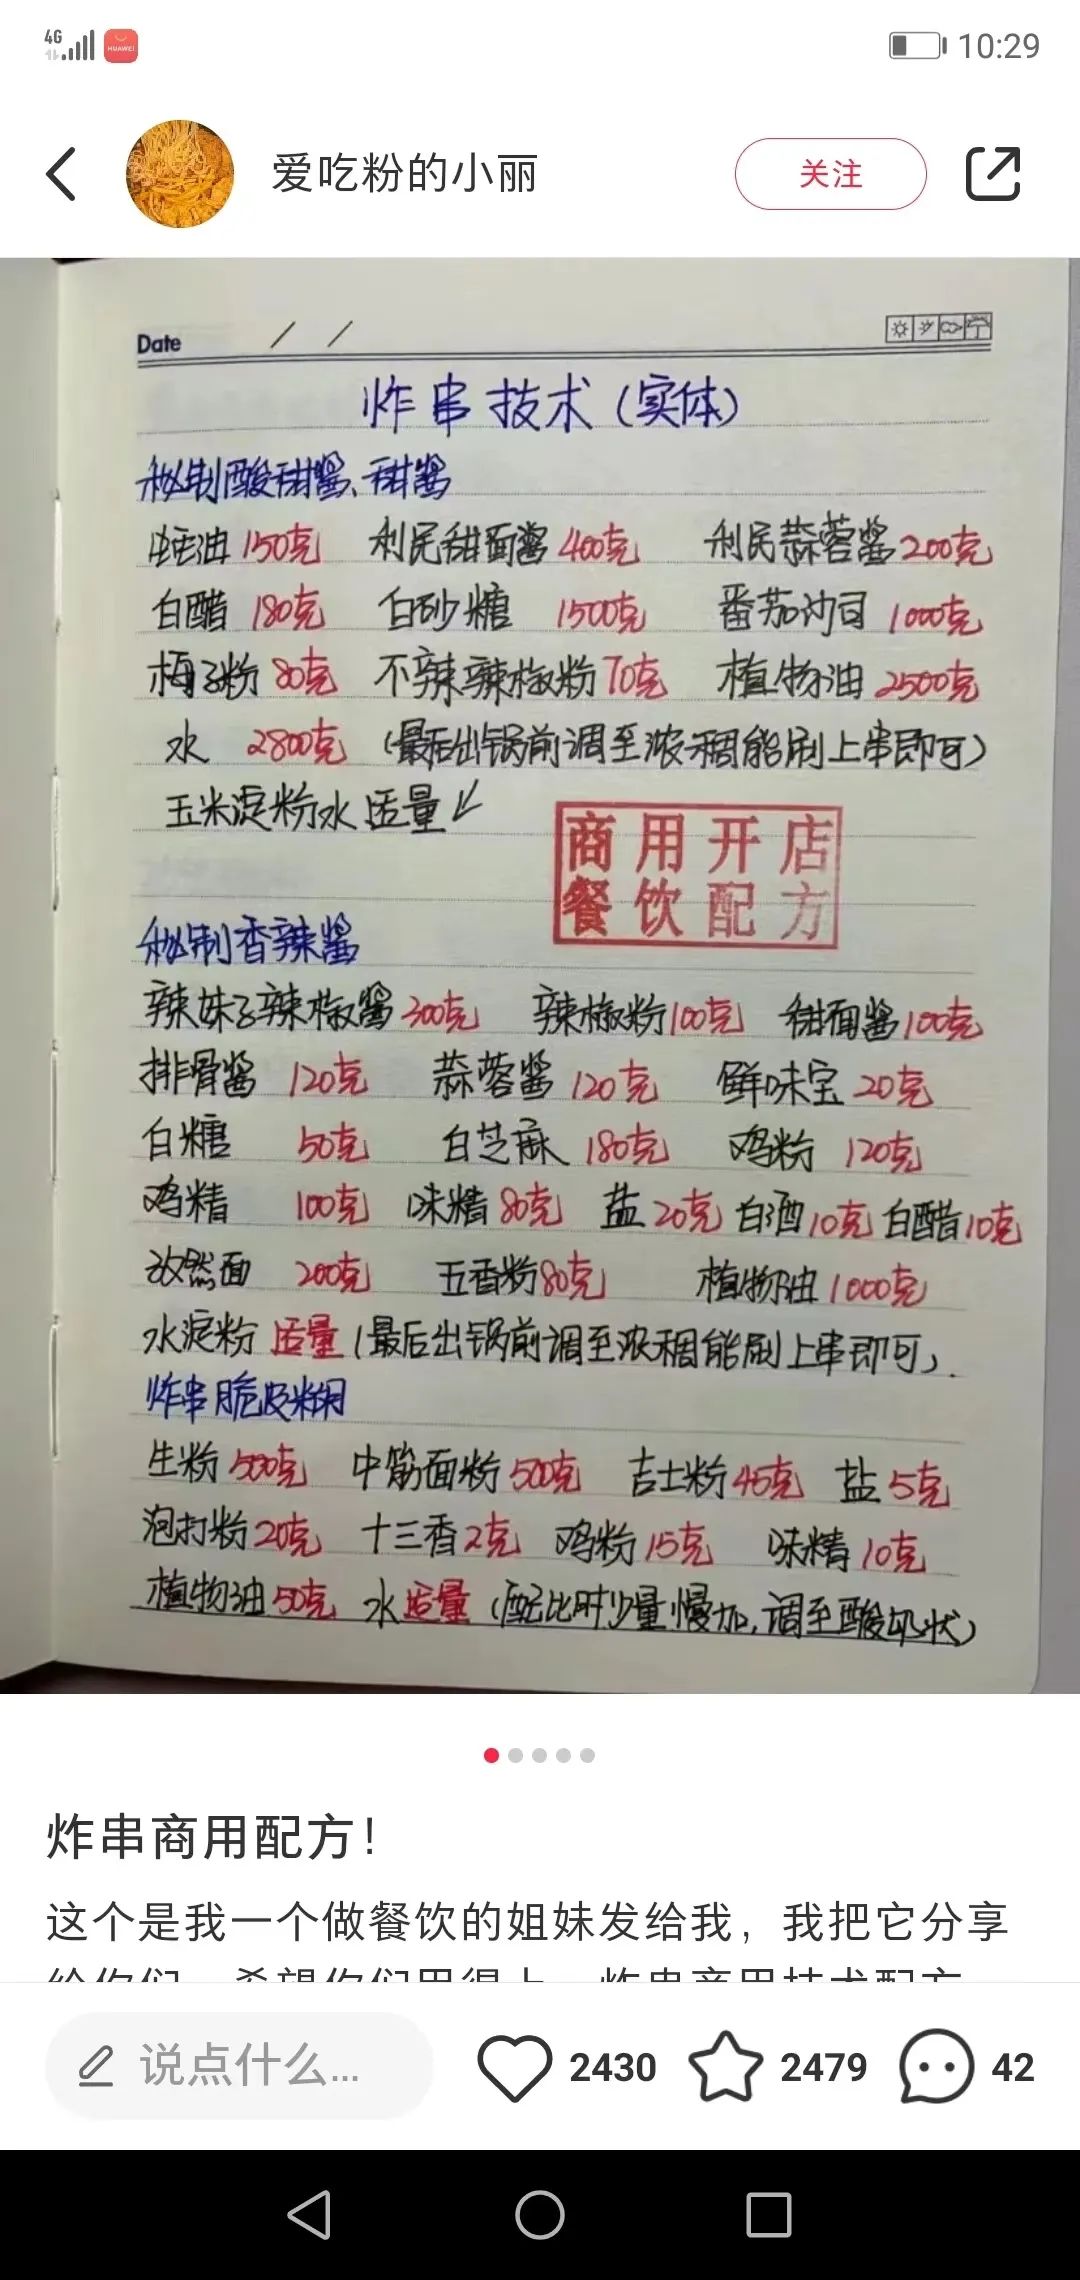 4G HUAWEI 10:29
爱吃粉的小丽 关注
Date / /
炸串技术(实体)
秘制酸甜酱、甜酱
蚝油150克 利民甜面酱400克 利民蒜蓉酱200克
白醋180克 白砂糖 1500克 番茄沙司 1000克
梅子粉80克 不辣辣椒粉70克 植物油2500克
水 2800克 (最后出锅前调至浓稠能刷上串即可)
玉米淀粉水适量↙
商用开店
餐饮配方
秘制香辣酱
辣妹子辣椒酱300克 辣椒粉100克 甜面酱100克
排骨酱 120克 蒜蓉酱120克 鲜味宝20克
白糖 50克 白芝麻 180克 鸡粉 120克
鸡精 100克 味精80克 盐20克 白酒10克 白醋10克
孜然面 200克 五香粉80克 植物油1000克
水淀粉适量(最后出锅前调至浓稠能刷上串即可).
炸串脆皮糊
生粉500克 中筋面粉500克 吉士粉45克 盐5克
泡打粉20克 十三香2克 鸡粉15克 味精10克
植物油50克 水适量(配比时少量慢加,调至酸奶状)
炸串商用配方!
这个是我一个做餐饮的姐妹发给我,我把它分享
说点什么... 2430 2479 42